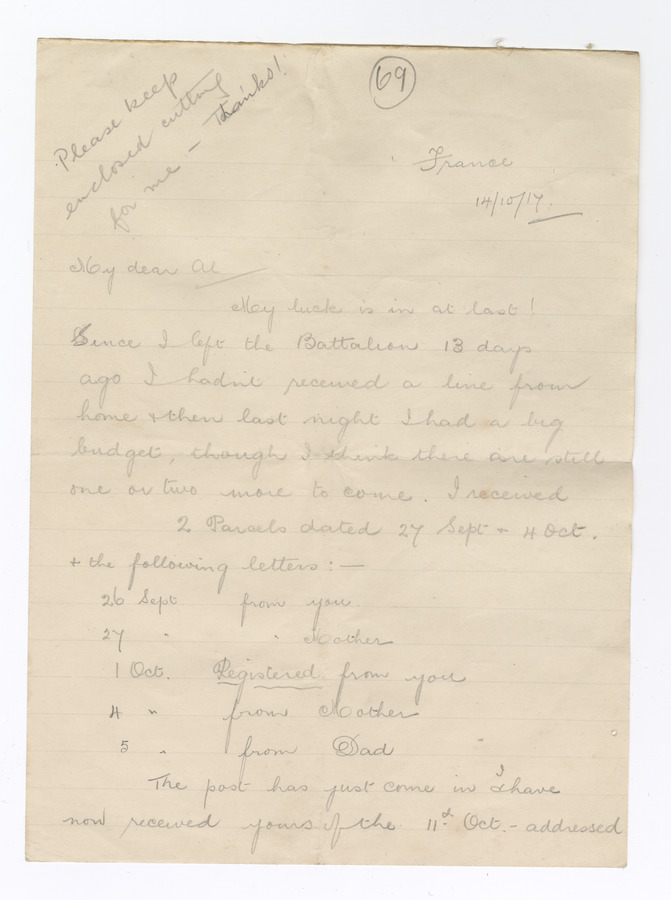 Please keep
enclosed cutting
for me - Thanks!
69
France
14/10/17.
My dear Al
My luck is in at last!
Since I left the Battalion 13 days
ago I hadn't received a line from
home & then last night I had a big
budget, though I think there are still
one or two more to come. I received
2 Parcels dated 27 Sept & 4 Oct.
& the following letters: —
26 Sept from you
27 " " Mother
1 Oct. Registered from you
4 " from Mother
5 " from Dad
The post has just come in & I have
now received yours of the 11th Oct. - addressed